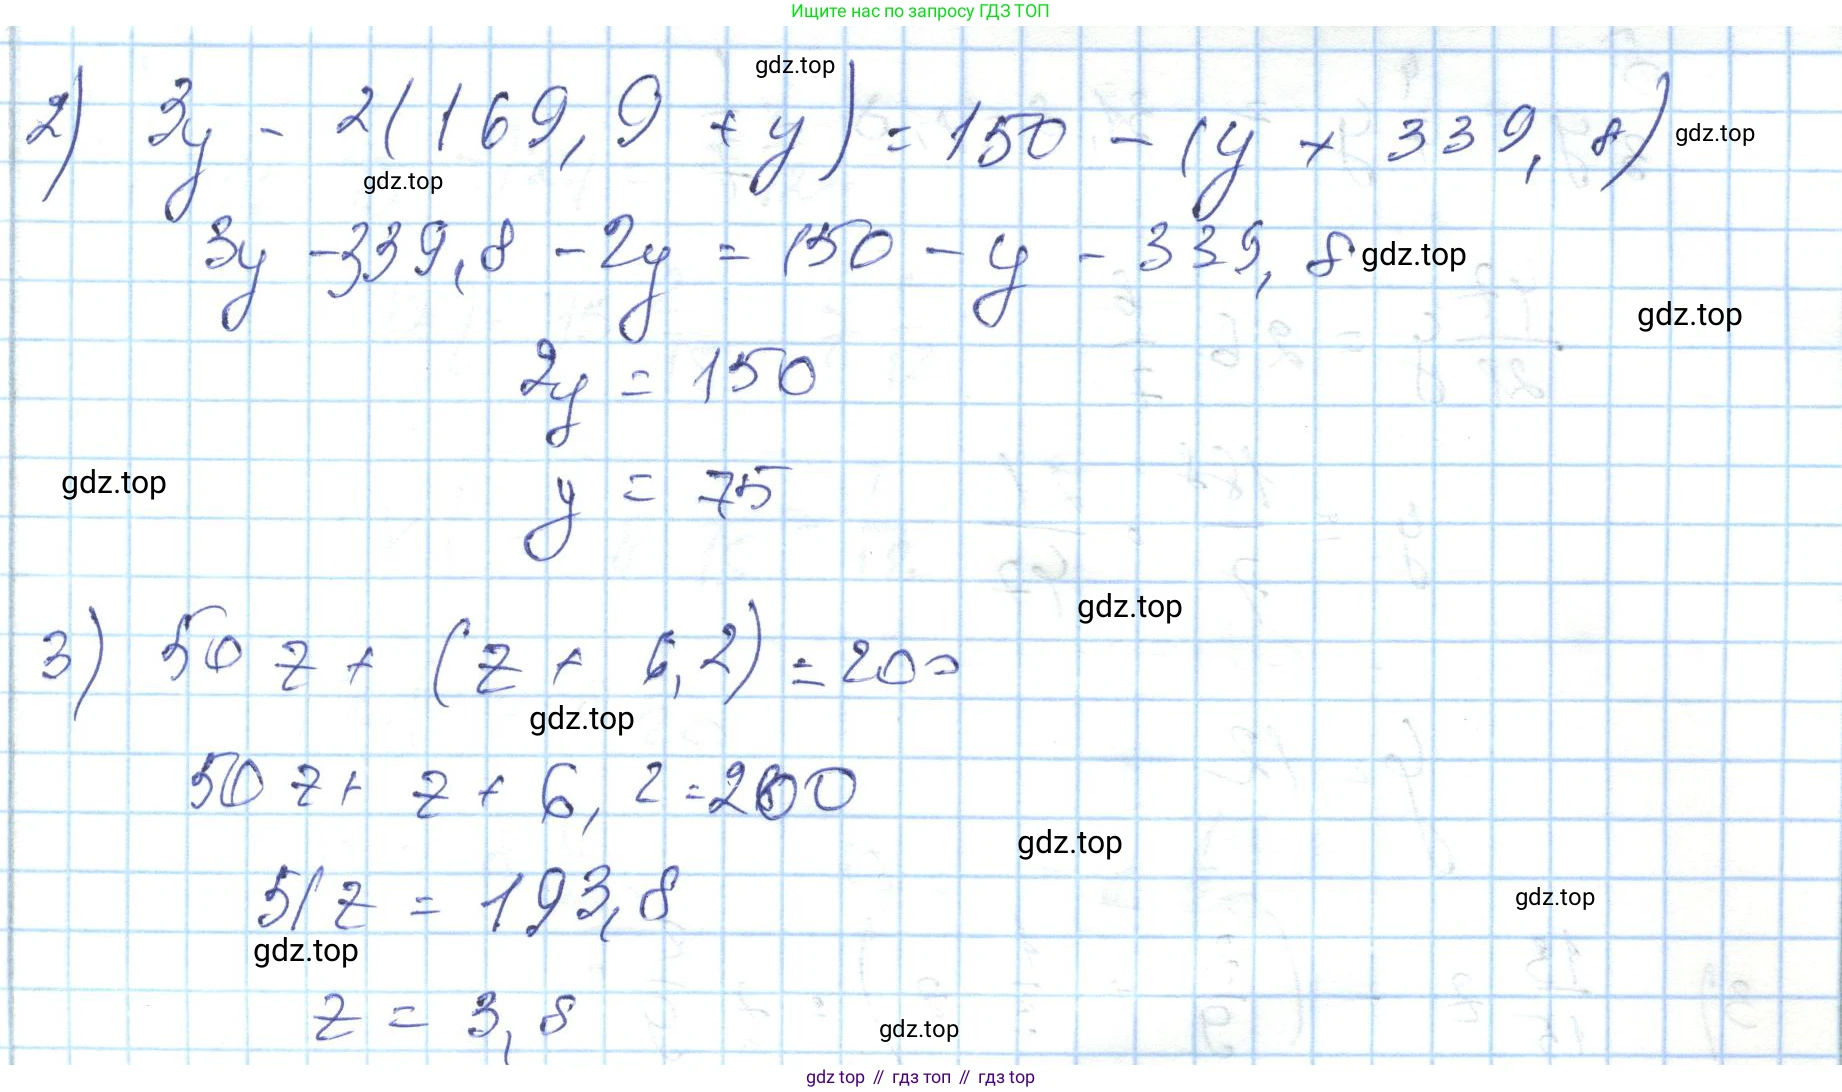 Ищите нас по запросу ГДЗ ТОП
gdz.top
2) 3y - 2(169,9 + y) = 150 - (y + 339,8)
gdz.top
gdz.top
3y - 339,8 - 2y = 150 - y - 339,8
gdz.top
gdz.top
2y = 150
gdz.top
y = 75
gdz.top
3) 50z + (z + 6,2) = 200
gdz.top
50z + z + 6,2 = 200
gdz.top
51z = 193,8
gdz.top
gdz.top
z = 3,8
gdz.top
gdz top // гдз топ // гдз top